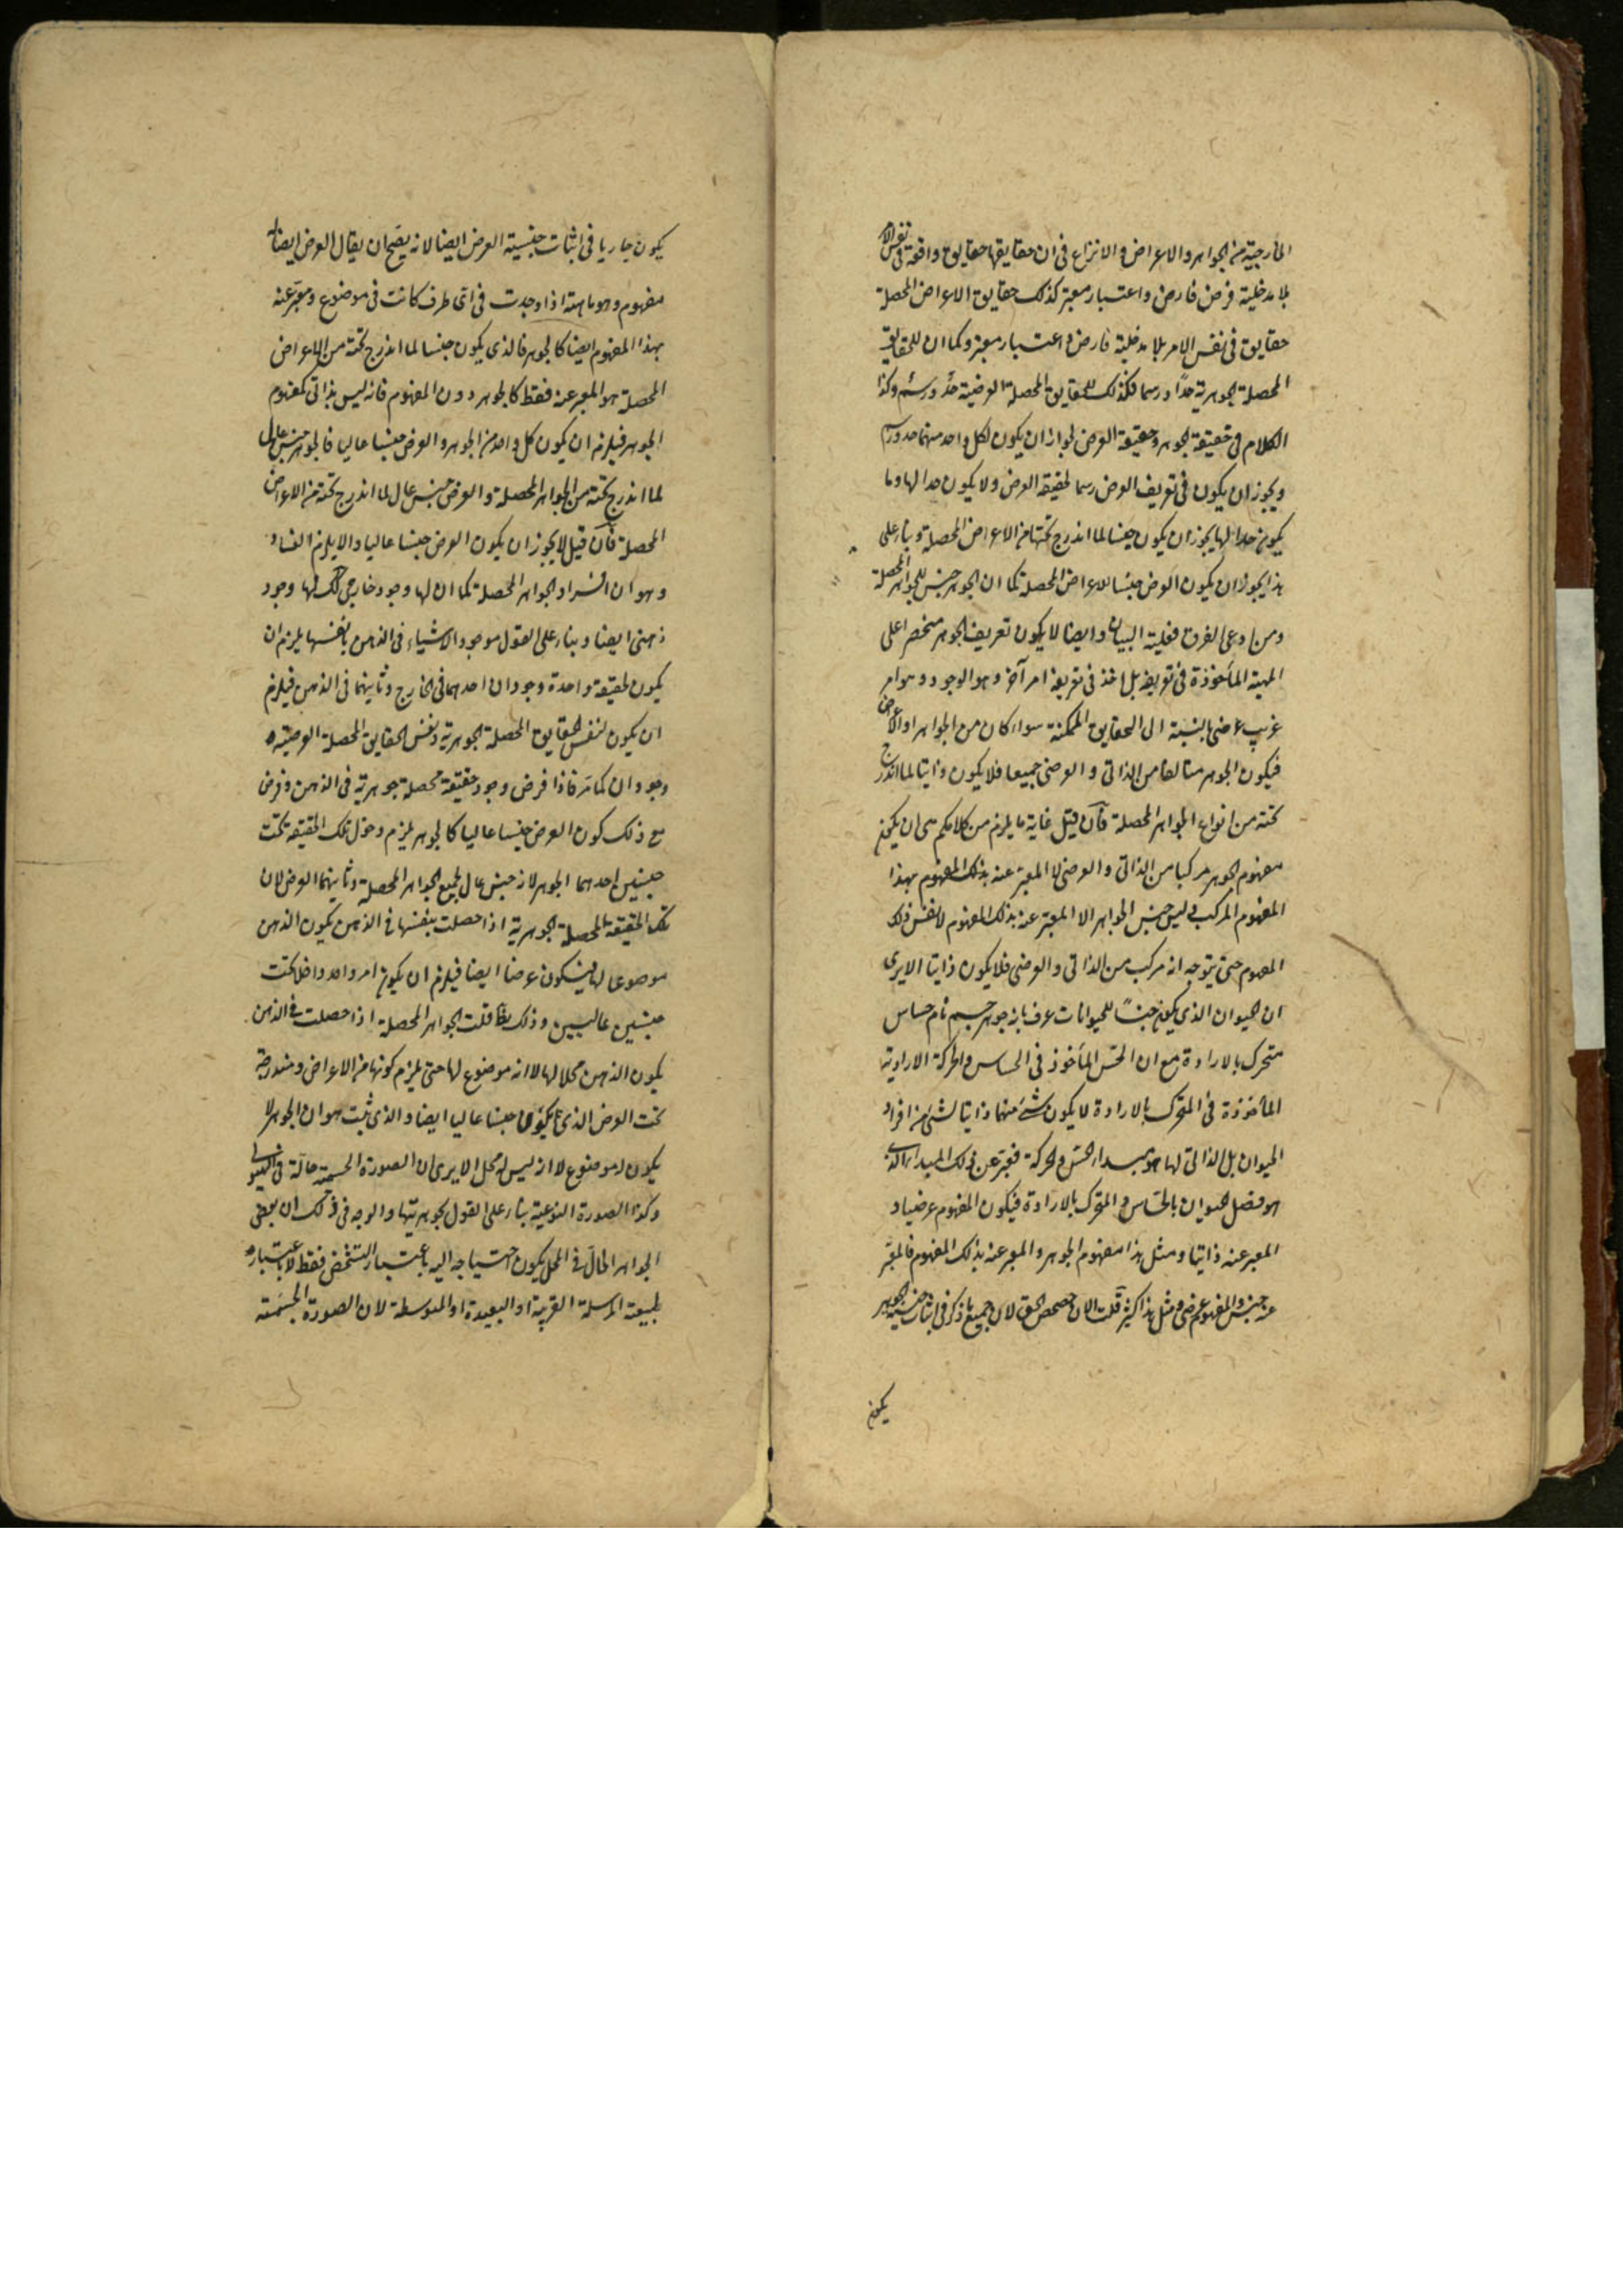 الخارجية من الجواهر والاعراض والانتزاع فى ان حقايقها حقايق واقعة فى نفس الامر
بلا مدخلية فرض فارض واعتبار معتبر كذلك حقايق الاعراض المحصلة
حقايق فى نفس الامر بلا مدخلية فارض واعتبار معتبر وكما ان للحقايق
المحصلة الجوهرية حدًا ورسما فكذلك للحقايق المحصلة العرضية حدٌ ورسمٌ وكذا
الكلام فى حقيقة الجوهر وحقيقة العرض لجواز ان يكون لكل واحد منهما حد ورسم
ويجوز ان يكون فى تعريف العرض رسما لحقيقة العرض ولا يكون حدا لها وما
يكون حدا لها يجوز ان يكون جنسا لما اندرج تحتها من الاعراض المحصلة وبناء على
هذا يجوز ان يكون العرض جنسًا للاعراض المحصلة كما ان الجوهر جنس للجواهر المحصلة
ومن ادعى الفرق فعليه البيان وايضا لا يكون تعريف الجوهر منحصرا على
المهية المأخوذة فى تعريفه بل اخذ فى تعريفه امر آخر وهو الوجود وهو امر
غريب عرضى بالنسبة الى الحقايق الممكنة سواء كان من الجواهر او الاعراض
فيكون الجوهر متالفا من الذاتى والعرضى جميعا فلا يكون ذاتيا لما اندرج
تحته من انواع الجواهر المحصلة فان قيل غاية ما يلزم من كلامكم هى ان يكون
مفهوم الجوهر مركبا من الذاتى والعرضى لا المعبر عنه بذلك المفهوم بهذا
المفهوم المركب وليس جنس الجواهر الا المعبر عنه بذلك المفهوم لا نفس ذلك
المفهوم حتى يتوجه انه مركب من الذاتى والعرضى فلا يكون ذاتيا الا يرى
ان الحيوان الذى يكون جنسًا للحيوانات عرف بانه جوهر جسم نام حساس
متحرك بالارادة مع ان الحس المأخوذ فى الحساس والحركة الارادية
المأخوذة فى المتحرك بالارادة لا يكون شئ منهما ذاتيا لشئ من افراد
الحيوان بل الذاتى لها هو مبداء الحس والحركة فعبر عن ذلك المبداء الذى
هو فصل الحيوان بالحساس والمتحرك بالارادة فيكون المفهوم عرضيا و
المعبر عنه ذاتيا ومثل هذا مفهوم الجوهر والمعبر عنه بذلك المفهوم فالمعبر
عنه جنس والمفهوم عرضى ومثل هذا كثير قلت الان حصحص الحق لان جميع ما ذكر فى اثبات جنسية الجوهر
يكون
يكون جاريا فى اثبات جنسية العرض ايضا لانه يصح ان يقال العرض ايضا له
مفهوم وهو ماهية اذا وجدت فى اى طرف كانت فى موضوع ومعبر عنه
بهذا المفهوم ايضا كالجوهر فالذى يكون جنسا لما اندرج تحته من الاعراض
المحصلة هو المعبر عنه فقط كالجوهر دون المفهوم فانه ليس بذاتى كمفهوم
الجوهر فيلزم ان يكون كل واحد من الجوهر والعرض جنسا عاليا فالجوهر جنس عال
لما اندرج تحته من الجواهر المحصلة والعرض جنس عال لما اندرج تحته من الاعراض
المحصلة فان قيل لا يجوز ان يكون العرض جنسا عاليا والا يلزم الفساد
وهو ان افراد الجواهر المحصلة كما ان لها وجود خارجى كذلك لها وجود
ذهنى ايضا وبناء على القول بوجود الاشياء فى الذهن بانفسها يلزم ان
يكون لحقيقة واحدة وجودان احدهما فى الخارج وثانيهما فى الذهن فيلزم
ان يكون لنفس الحقايق المحصلة الجوهرية ونفس الحقايق المحصلة العرضية
وجودان كما مر فاذا فرض وجود حقيقة محصلة جوهرية فى الذهن وفرض
مع ذلك كون العرض جنسا عاليا كالجوهر يلزم دخول تلك الحقيقة تحت
جنسين احدهما الجوهر لانه جنس عال لجميع الجواهر المحصلة وثانيهما العرض لان
تلك الحقيقة المحصلة الجوهرية اذا حصلت بنفسها فى الذهن يكون الذهن
موضوعا لها فيكون عرضا ايضا فيلزم ان يكون امر واحد داخلا تحت
جنسين عاليين وذلك بط قلت الجواهر المحصلة اذا حصلت فى الذهن
يكون الذهن محلا لها لا انه موضوع لها حتى يلزم كونها من الاعراض ومندرجة
تحت العرض الذى يكون جنسا عاليا ايضا والذى ثبت هو ان الجوهر لا
يكون له موضوع لا انه ليس له محل الا يرى ان الصورة الجسمية حالة فى الهيولى
وكذا الصورة النوعية بناء على القول بجوهريتها والوجه فى ذلك ان بعض
الجواهر الحال فى المحل يكون احتياجه اليه باعتبار التشخص فقط لا باعتبار
طبيعة المرسلة القريبة او البعيدة او المتوسطة لان الصورة الجسمية